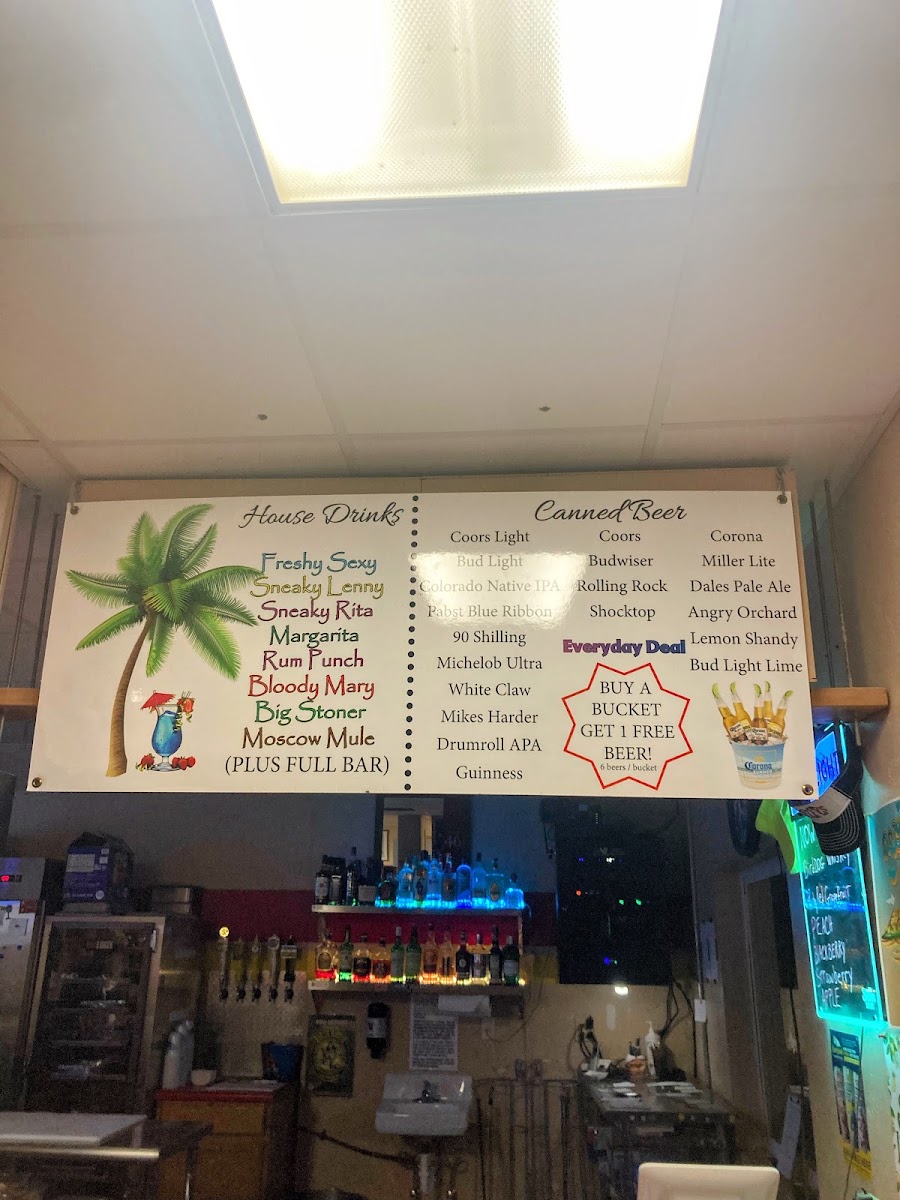 House Drinks
Freshy Sexy
Sneaky Lenny
Sneaky Rita
Margarita
Rum Punch
Bloody Mary
Big Stoner
Moscow Mule
(PLUS FULL BAR)
Canned Beer
Coors Light
Bud Light
Colorado Native IPA
Pabst Blue Ribbon
90 Shilling
Michelob Ultra
White Claw
Mikes Harder
Drumroll APA
Guinness
Coors
Budwiser
Rolling Rock
Shocktop
Corona
Miller Lite
Dales Pale Ale
Angry Orchard
Lemon Shandy
Bud Light Lime
Everyday Deal
BUY A
BUCKET
GET 1 FREE
BEER!
6 beers / bucket
Corona
WHISKY
PEACH
BLACKBERRY
STRAWBERRY
APPLE